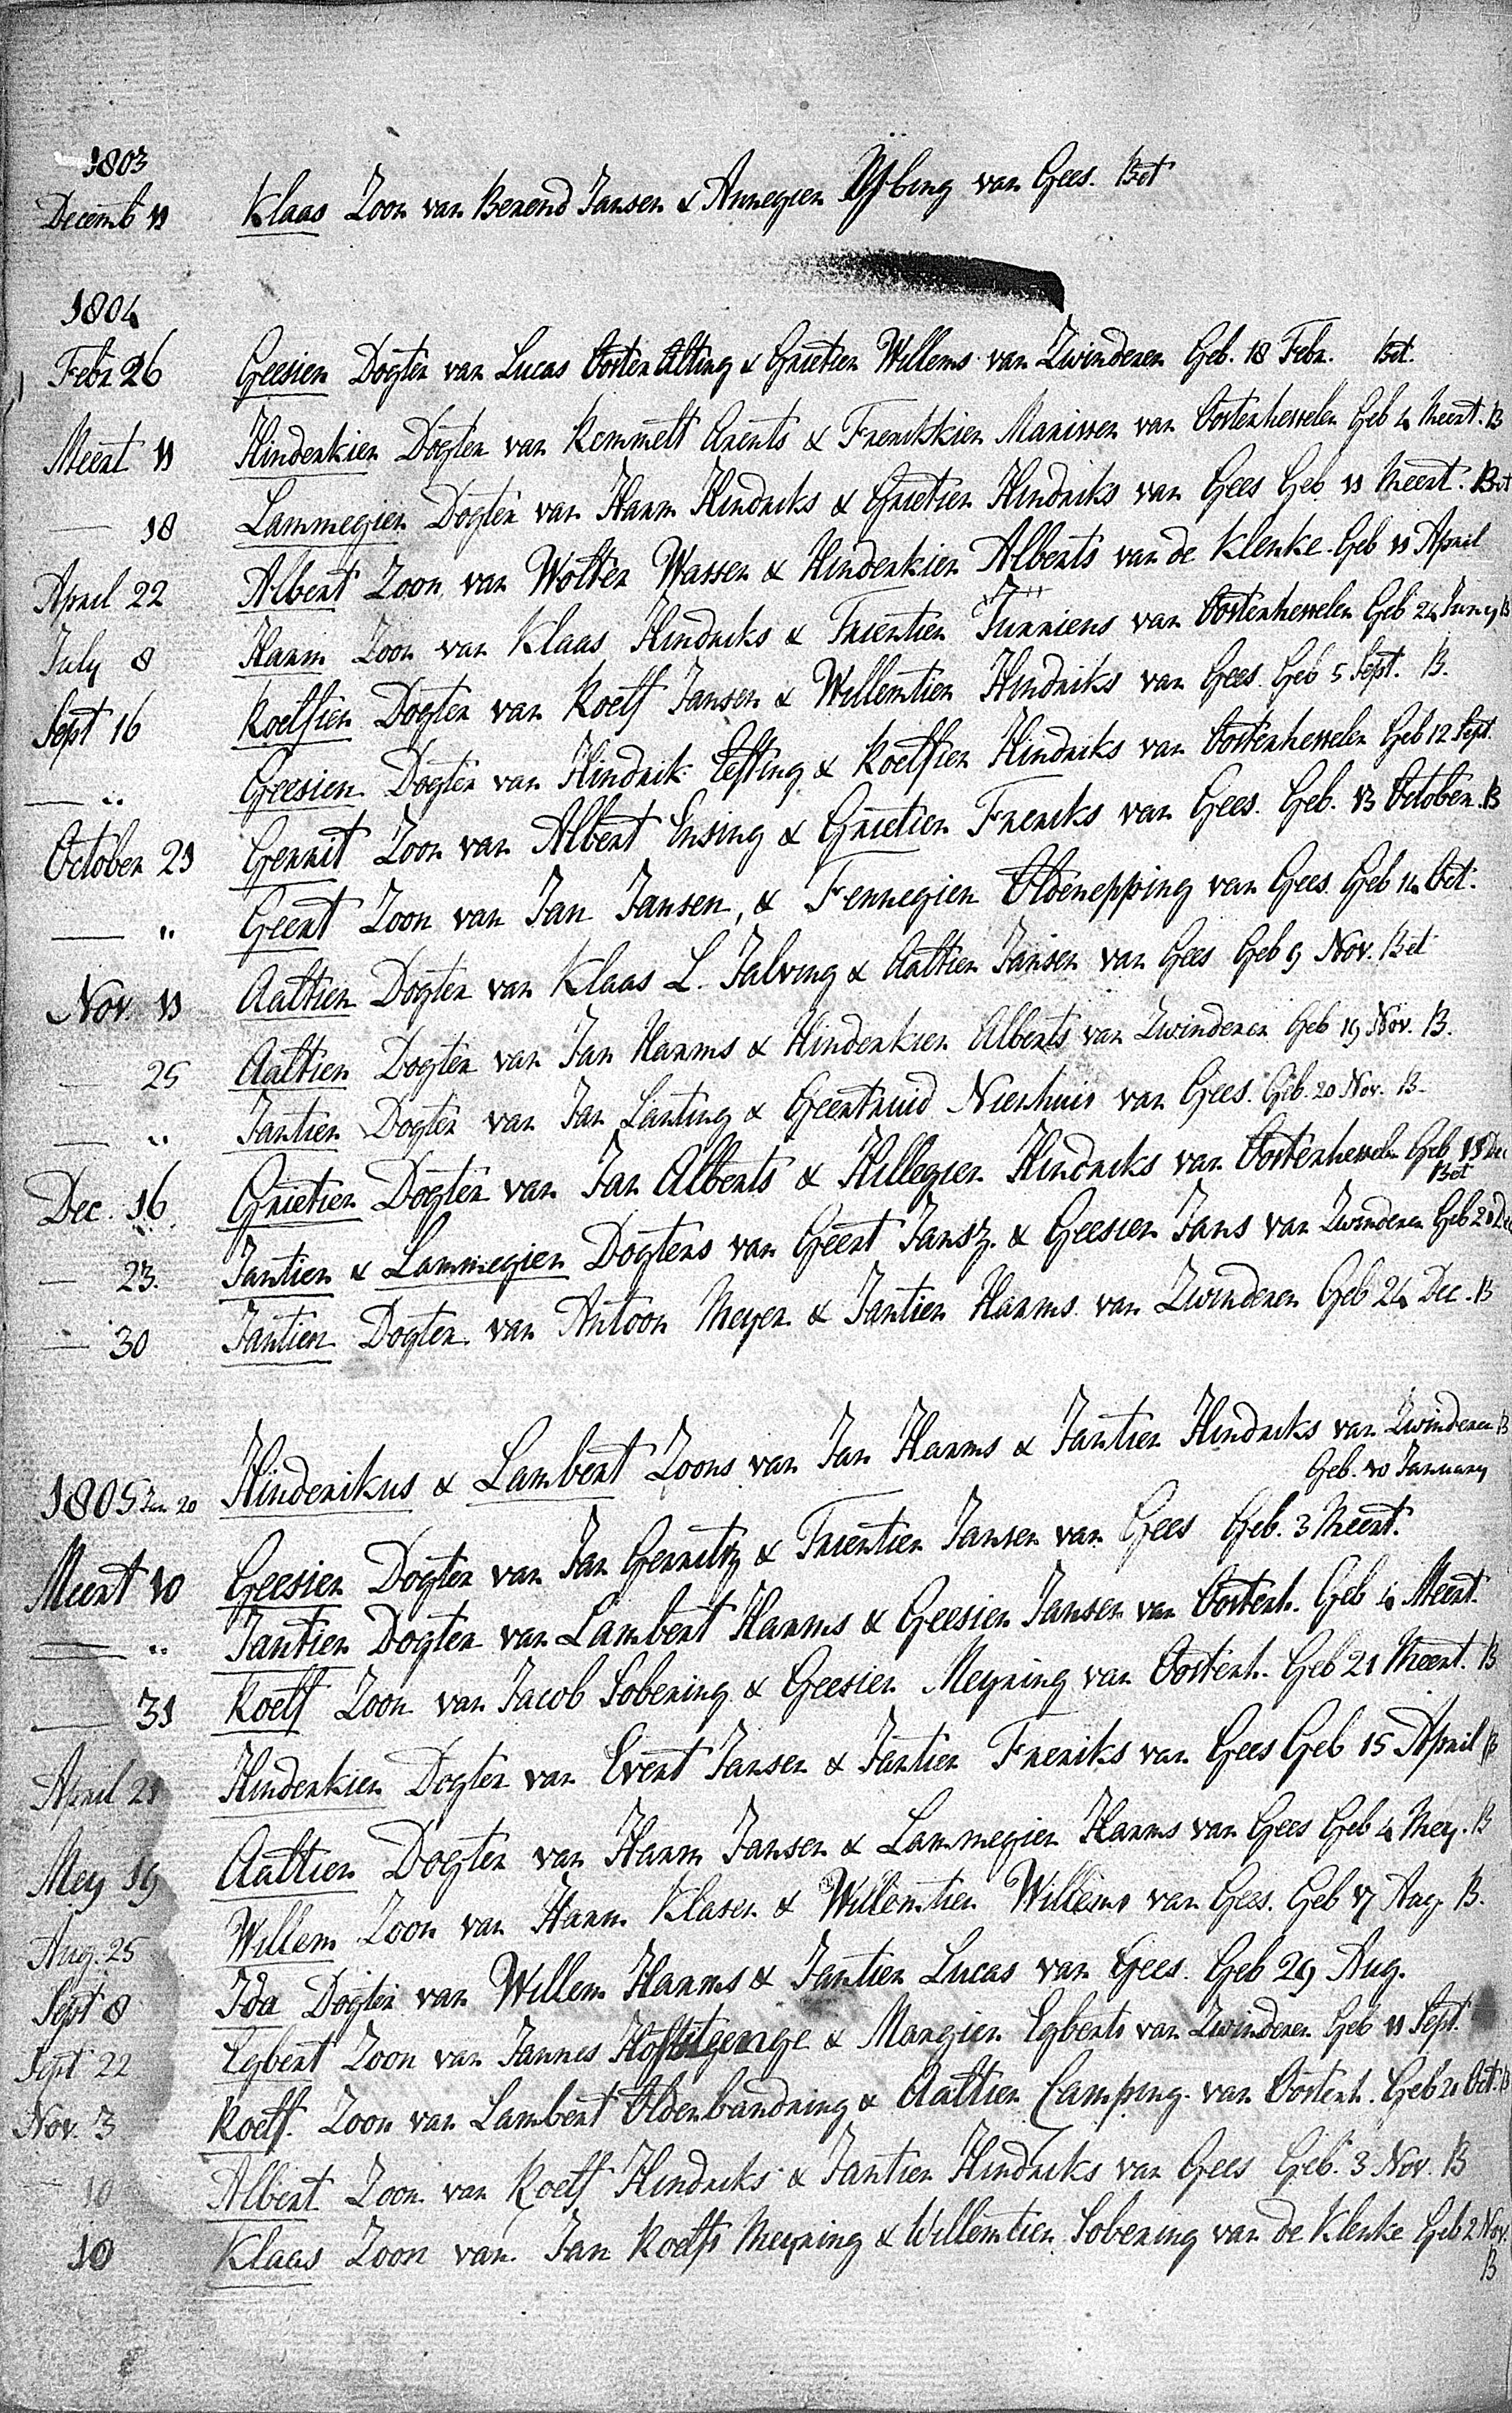 1803
Decemb 11 Klaas Zoon van Berend Jansen & Annegien Ysbing van Gees. Bet
1804
Febr 26 Geesien Dogter van Lucas Oosten Alting & Grietien Willems van Zwinderen Geb. 18 Febr. Bet.
Meert 11 Hinderkien Dogter van Remmelt Arents & Frerikkien Marissen van Oosterhesselen Geb 4 Meert. B
— 18 Lammegien Dogter van Harm Hindriks & Grietien Hindriks van Gees Geb 11 Meert. Bet
April 22 Albert Zoon van Wolter Wassen & Hinderkien Alberts van de Klenke. Geb 11 April
July 8 Harm Zoon van Klaas Hindriks & Trientien Jurriens van Oosterhesselen Geb 24 Juny B
Sept 16 Roelfien Dogter van Roelf Jansen & Willemtien Hindriks van Gees. Geb 5 Sept. B.
— " Geesien Dogter van Hindrik Eefting & Roelfien Hindriks van Oosterhesselen Geb 12 Sept.
October 21 Gerrit Zoon van Albert Ensing & Grietien Freriks van Gees. Geb. 13 October. B
— " Geert Zoon van Jan Jansen, & Fennegien Oldenepping van Gees. Geb 14 Oct.
Nov. 11 Aaltien Dogter van Klaas L. Jalving & Aaltien Jansen van Gees Geb 9 Nov. Bet
— 25 Aaltien Dogter van Jan Harms & Hinderkien Alberts van Zwinderen Geb 19 Nov. B.
— " Jantien Dogter van Jan Lanting & Geertruid Nienhuis van Gees. Geb. 20 Nov. B.
Dec. 16 Grietien Dogter van Jan Alberts & Hillegien Hindriks van Oosterhesselen Geb 11 Dec
Bet
— 23. Jantien & Lammegien Dogters van Geert Jansz. & Geesien Jans van Zwinderen Geb 21 Dec
— 30 Jantien Dogter van Antoon Meyer & Jantien Harms van Zwinderen Geb 24 Dec. B
1805 Jan 20 Hinderikus & Lambert Zoons van Jan Harms & Jantien Hindriks van Zwinderen B
Geb. 10 January
Meert 10 Geesien Dogter van Jan Gerritz & Trientien Jansen van Gees Geb. 3 Meert.
— " Jantien Dogter van Lambert Harms & Geesien Jansen van Oosterh. Geb 4 Meert.
— 31 Roelf Zoon van Jacob Sobering & Geesien Meyring van Oosterh. Geb 21 Meert. B
April 21 Hinderkien Dogter van Evert Jansen & Jantien Freriks van Gees Geb 15 April B
Mey 19 Aaltien Dogter van Harm Jansen & Lammegien Harms van Gees Geb 4 Mey. B
Aug. 25 Willem Zoon van Harm Klasen & Willemtien Willems van Gees. Geb 17 Aug. B.
Sept 8 Ida Dogter van Willem Harms & Jantien Lucas van Gees. Geb 29 Aug.
Sept 22 Egbert Zoon van Jannes & Margien Egberts van Zwinderen Geb 11 Sept.
Nov. 3 Roelf Zoon van Lambert Oldenbandring & Aaltien Camping van Oosterh. Geb 21 Oct. B
— 10 Albert Zoon van Roelf Hindriks & Jantien Hindriks van Gees Geb. 3 Nov. B
10 Klaas Zoon van Jan Roelfs Meyring & Willemtien Sobering van de Klenke Geb 2 Nov.
B